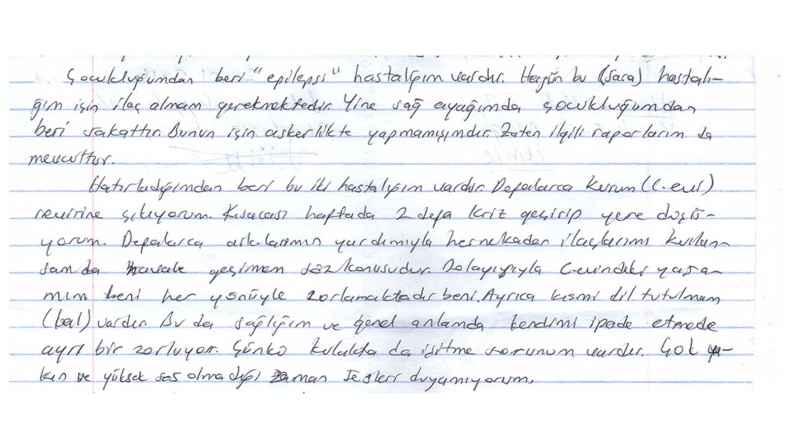 Çocukluğumdan beri "epilepsi" hastalığım vardır. Hergün bu (sara) hastalı-
ğım için ilaç almam gerekmektedir. Yine sağ ayağımda çocukluğumdan
beri sakattır. Bunun için askerlikte yapmamışımdır. Zaten ilgili raporlarım da
mevcuttur.
Hatırladığımdan beri bu iki hastalığım vardır. Defalarca kurum (c.evi)
revirine çıkıyorum. Kısacası haftada 2 defa kriz geçirip yere düşü-
yorum. Defalarca arkılarımın yardımıyla hernekadar ilaçlarımı kullan-
sam da havale geçimem söz konusudur. Dolayısıyla C.evindeki yaşa-
mım beni her yönüyle zorlamaktadır beni. Ayrıca kısmi dil tutulmam
(bal) vardır. Bu da sağlığım ve genel anlamda kendimi ifade etmede
ayrı bir zorluyor. Çünkü kulakta da işitme sorunum vardır. Çok ya-
kın ve yüksek ses olmadığı zaman sesleri duyamıyorum.